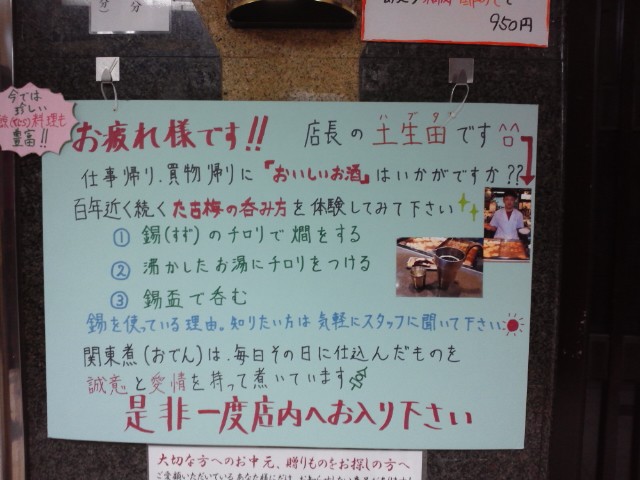 950円
今では
珍しい
料理も
豊富!!
お疲れ様です!! 店長の土生田です
ハブタ
仕事帰り、買物帰りに『おいしいお酒』はいかがですか??
百年近く続くたこ梅の呑み方を体験してみて下さい
① 錫(すず)のチロリで燗をする
② 沸かしたお湯にチロリをつける
③ 錫盃で呑む
錫を使っている理由。知りたい方は気軽にスタッフに聞いて下さい
関東煮(おでん)は、毎日その日に仕込んだものを
誠意と愛情を持って煮いています
是非一度店内へお入り下さい
大切な方へのお中元、贈りものをお探しの方へ